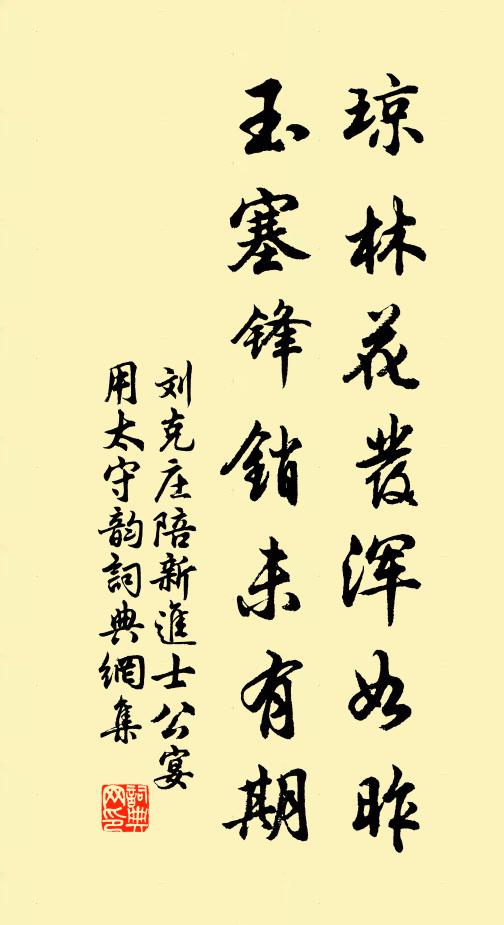 琼林花發浑如昨
玉塞锋銷未有期
刘克庄陪新進士公宴
用太守韵詞典網集
詞典
网印